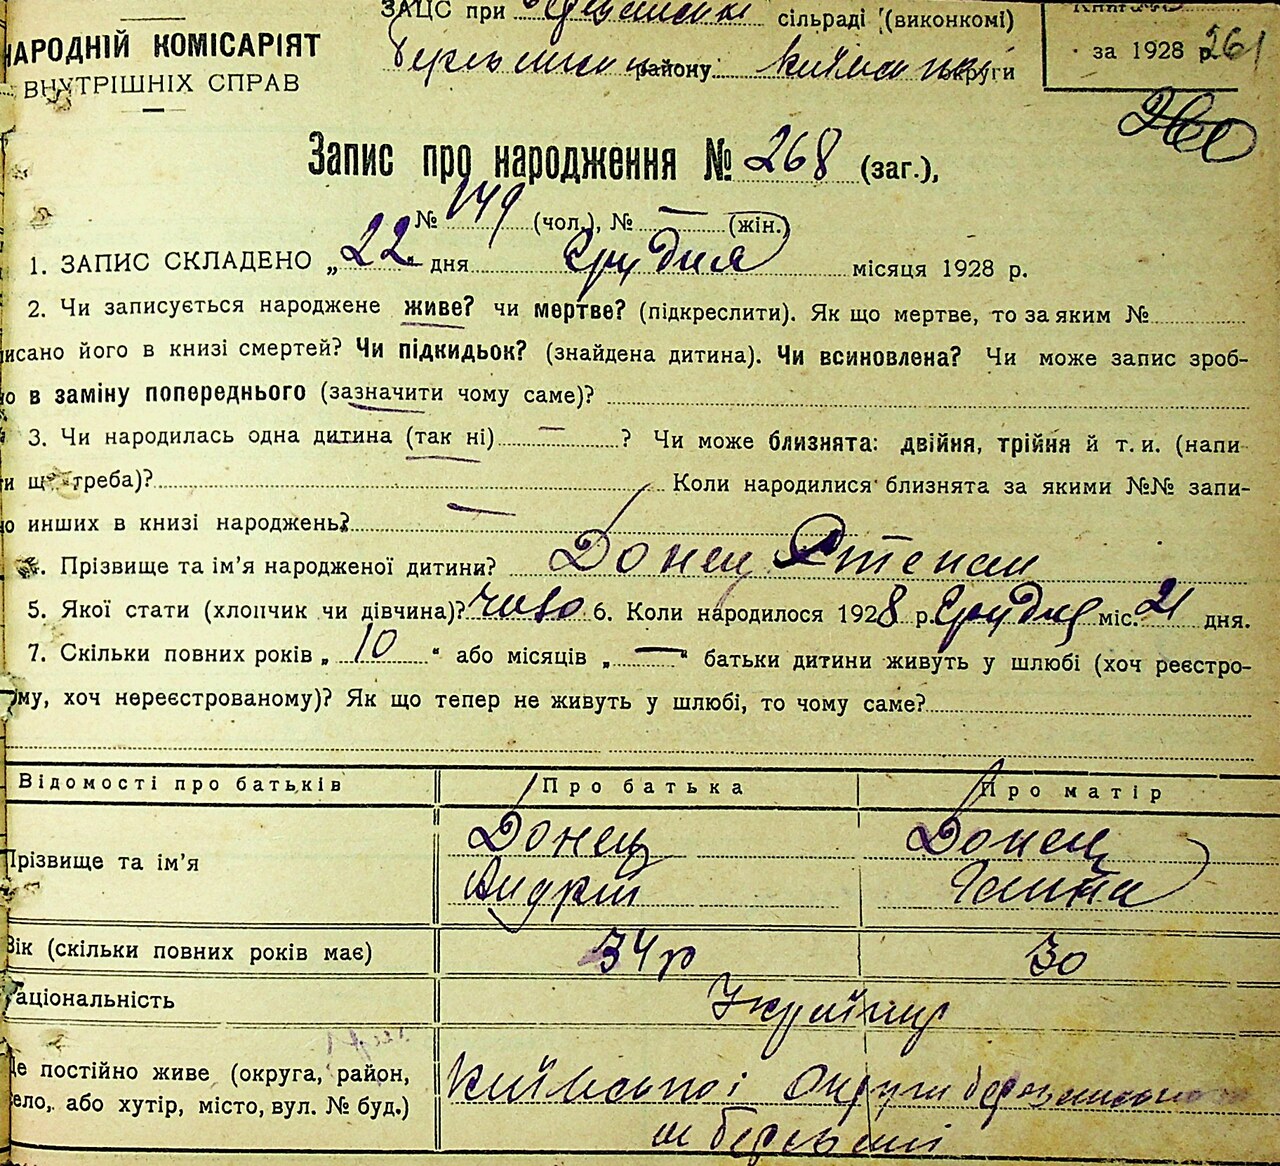 НАРОДНІЙ КОМІСАРІЯТ
ВНУТРІШНІХ СПРАВ
ЗАЦС при сільраді (виконкомі)
району округи
за 1928 р. 261
260
Запис про народження № 268 (заг.),
№ 149 (чол.), № — (жін.)
1. ЗАПИС СКЛАДЕНО „22" дня Грудня місяця 1928 р.
2. Чи записується народжене живе? чи мертве? (підкреслити). Як що мертве, то за яким №
писано його в книзі смертей? Чи підкидьок? (знайдена дитина). Чи всиновлена? Чи може запис зроб-
о в заміну попереднього (зазначити чому саме)?
3. Чи народилась одна дитина (так ні) — ? Чи може близнята: двійня, трійня й т. и. (напи-
и що треба)? Коли народилися близнята за якими №№ запи-
о инших в книзі народжень? —
4. Прізвище та ім'я народженої дитини? Донец Степан
5. Якої статі (хлопчик чи дівчина)? чоло 6. Коли народилося 1928 р. Грудня міс. 21 дня.
7. Скільки повних років „10" або місяців „—" батьки дитини живуть у шлюбі (хоч реєстро-
ому, хоч нереєстрованому)? Як що тепер не живуть у шлюбі, то чому саме?
Відомості про батьків Про батька Про матір
Прізвище та ім'я Донец Андрій Донец Ганна
Вік (скільки повних років має) 34 р 30
Національність Українці
Де постійно живе (округа, район, село, або хутір, місто, вул. № буд.) Київської Округи
м